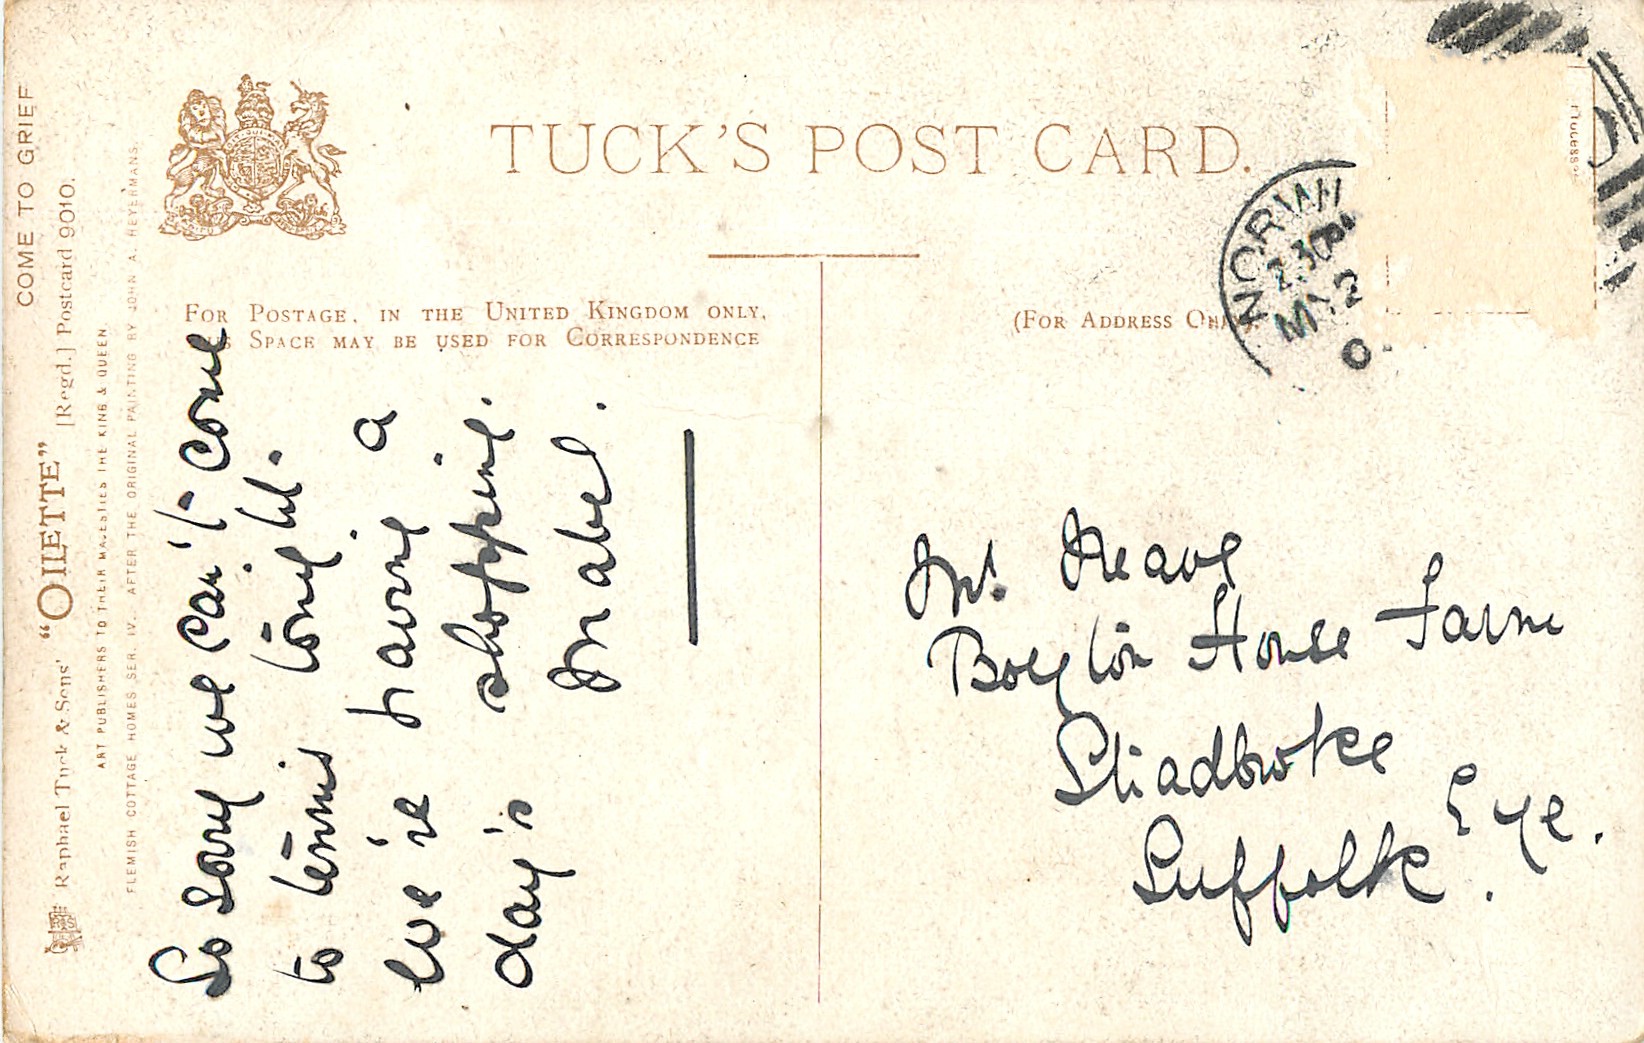 COME TO GRIEF
Raphael Tuck & Sons' "OILETTE" [Regd.] Postcard 9010.
ART PUBLISHERS TO THEIR MAJESTIES THE KING & QUEEN.
FLEMISH COTTAGE HOMES SER. IV. AFTER THE ORIGINAL PAINTING BY JOHN A. HEYERMANS.
TUCK'S POST CARD.
FOR POSTAGE, IN THE UNITED KINGDOM ONLY,
SPACE MAY BE USED FOR CORRESPONDENCE
(FOR ADDRESS
NORWI
2.30PM
MY 2
0
So sorry we can't come
to tennis tonight.
We're having a
day's shopping.
Mabel.
Mr. Neave
Boyton House Farm
Stradbroke
Eye.
Suffolk.